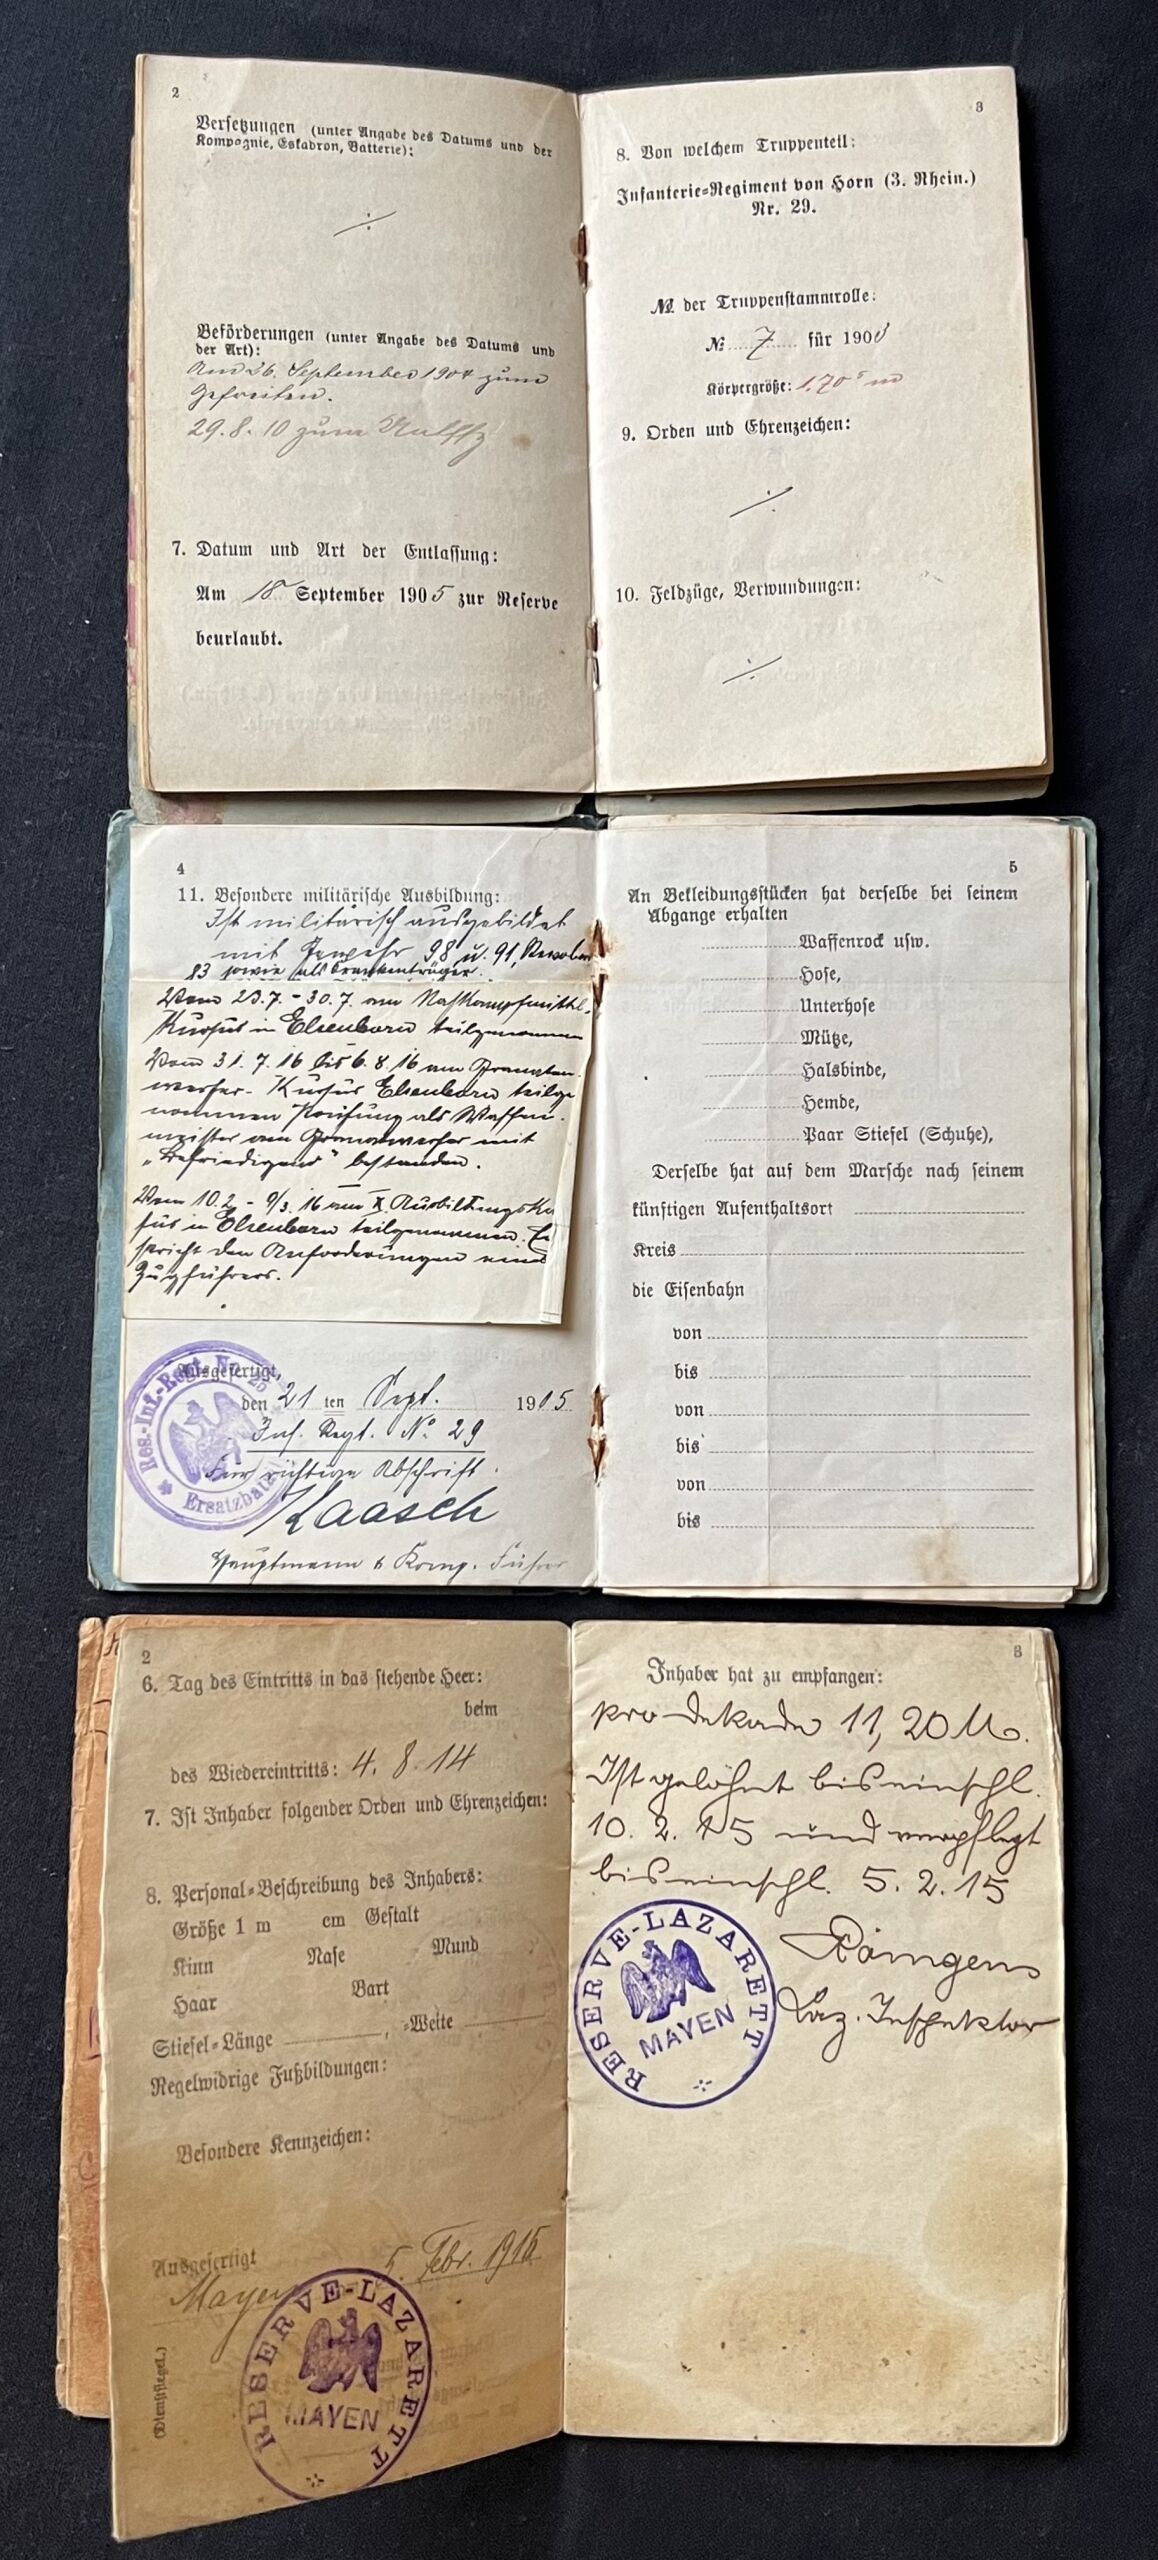 2
Versetzungen (unter Angabe des Datums und der
Kompagnie, Eskadron, Batterie):
Beförderungen (unter Angabe des Datums und
der Art):
Am 26. September 1904 zum
Gefreiten.
29.8.10 zum
7. Datum und Art der Entlassung:
Am 18 September 1905 zur Reserve
beurlaubt.
3
8. Von welchem Truppenteil:
Infanterie-Regiment von Horn (3. Rhein.)
Nr. 29.
№ der Truppenstammrolle:
№ 7 für 1903
Körpergröße: 1.70⁵ m
9. Orden und Ehrenzeichen:
10. Feldzüge, Verwundungen:
4
11. Besondere militärische Ausbildung:
Ist militärisch ausgebildet
mit Gewehr 98 u. 91, Revolver
83 sowie als Krankenträger.
Vom 23.7. - 30.7. am Nahkampfmittel-
Kursus in Elsenborn teilgenommen
Vom 31.7.16 bis 6.8.16 am Granaten-
werfer-Kursus Elsenborn teilge
nommen Prüfung als Waffen-
meister am Granatwerfer mit
„Befriedigend" bestanden.
Vom 10.2. - 9/3. 16 am X. Ausbildungsku
sus in Elsenborn teilgenommen. Ent
spricht den Anforderungen eines
Zugführers.
Ausgefertigt,
den 21 ten Sept. 1905
Inf. Regt. No. 29
Für richtige Abschrift.
Kaasch
Hauptmann u. Komp. Führer
Res.-Inf.-Regt. Nr.
Ersatzbatail
5
An Bekleidungsstücken hat derselbe bei seinem
Abgange erhalten
Waffenrock usw.
Hose,
Unterhose
Mütze,
Halsbinde,
Hemde,
Paar Stiefel (Schuhe),
Derselbe hat auf dem Marsche nach seinem
künftigen Aufenthaltsort
Kreis
die Eisenbahn
von
bis
von
bis
von
bis
2
6. Tag des Eintritts in das stehende Heer:
beim
des Wiedereintritts: 4. 8. 14
7. Ist Inhaber folgender Orden und Ehrenzeichen:
8. Personal-Beschreibung des Inhabers:
Größe 1 m cm Gestalt
Kinn Nase Mund
Haar Bart
Stiefel-Länge , -Weite
Regelwidrige Fußbildungen:
Besondere Kennzeichen:
Ausgefertigt
Mayen 5. Febr. 1915
(Dienstsiegel.)
RESERVE-LAZARETT
MAYEN
3
Inhaber hat zu empfangen:
pro Dekade 11,20 M.
Ist gelöhnt bis einschl.
10. 2. 15 und verpflegt
bis einschl. 5. 2. 15
Römgens
Laz. Inspektor
RESERVE-LAZARETT
MAYEN